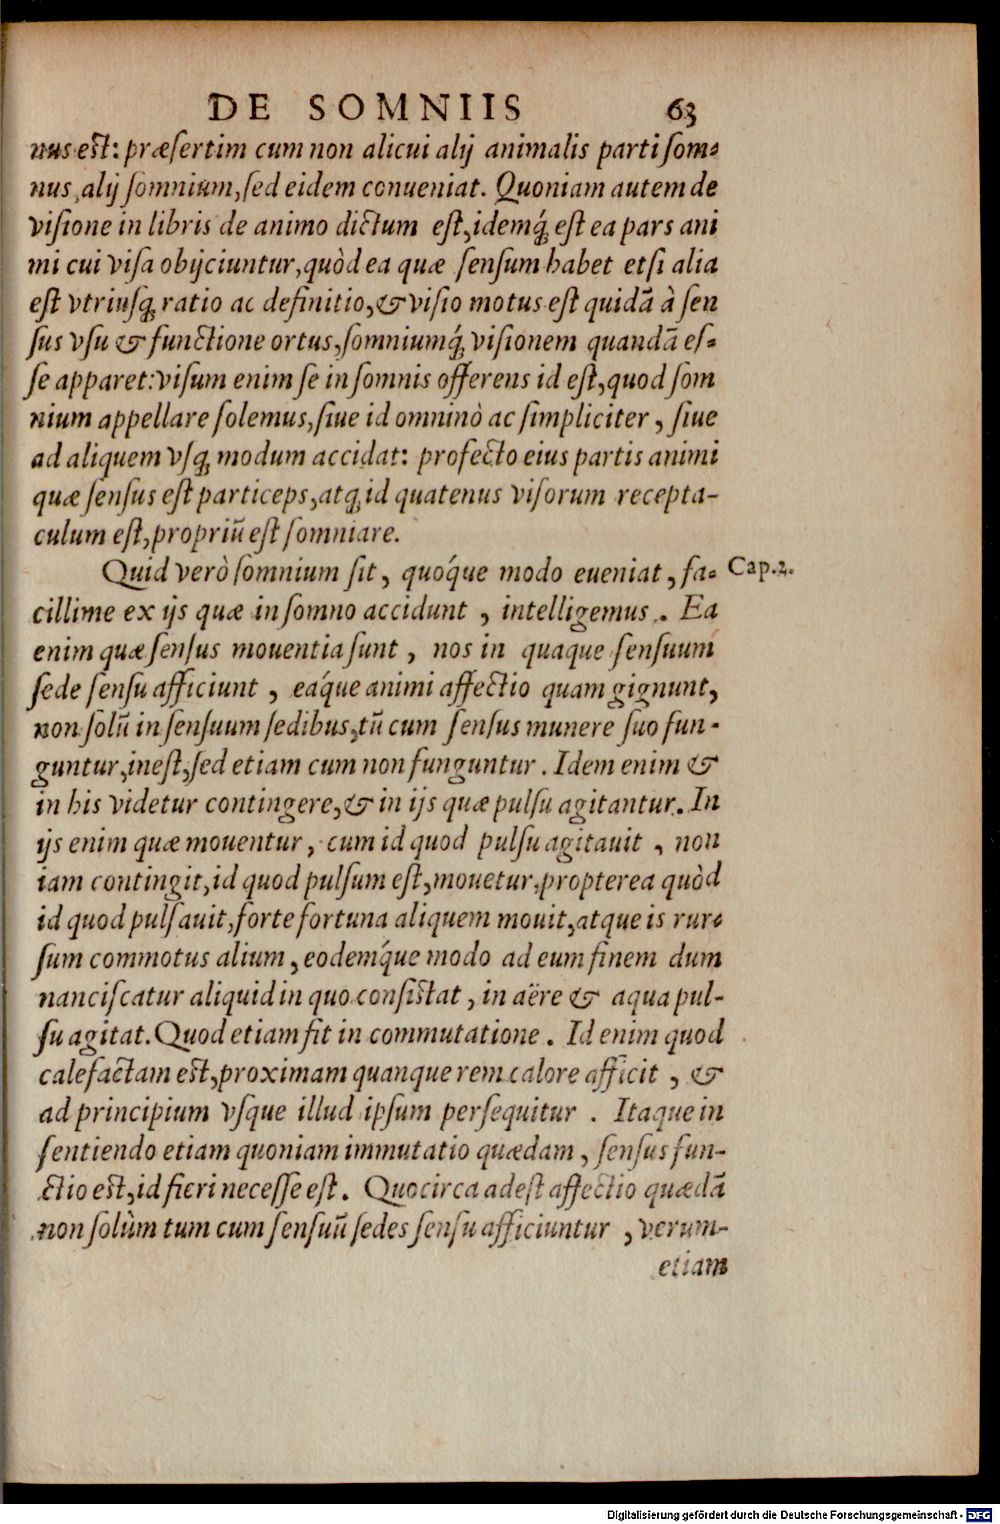 DE SOMNIIS 63
nus est: præsertim cum non alicui alij animalis parti som-
nus, alij somnium, sed eidem conueniat. Quoniam autem de
visione in libris de animo dictum est, idemq́; est ea pars ani
mi cui visa obijciuntur, quòd ea quæ sensum habet etsi alia
est vtriusq; ratio ac definitio, & visio motus est quidã à sen
sus vsu & functione ortus, somniumq́; visionem quandã es-
se apparet: visum enim se in somnis offerens id est, quod som
nium appellare solemus, siue id omninò ac simpliciter, siue
ad aliquem vsq; modum accidat: profecto eius partis animi
quæ sensus est particeps, atq; id quatenus visorum recepta-
culum est, propriũ est somniare.
Quid verò somnium sit, quoq́ue modo eueniat, fa- Cap.2.
cillime ex ijs quæ in somno accidunt, intelligemus. Ea
enim quæ sensus mouentia sunt, nos in quaque sensuum
sede sensu afficiunt, eaq́ue animi affectio quam gignunt,
non solũ in sensuum sedibus, tũ cum sensus munere suo fun-
guntur, inest, sed etiam cum non funguntur. Idem enim &
in his videtur contingere, & in ijs quæ pulsu agitantur. In
ijs enim quæ mouentur, cum id quod pulsu agitauit, non
iam contingit, id quod pulsum est, mouetur, propterea quòd
id quod pulsauit, forte fortuna aliquem mouit, atque is rur-
sum commotus alium, eodemq́ue modo ad eum finem dum
nanciscatur aliquid in quo consistat, in aëre & aqua pul-
su agitat. Quod etiam fit in commutatione. Id enim quod
calefactam est, proximam quanque rem calore afficit, &
ad principium vsque illud ipsum persequitur. Itaque in
sentiendo etiam quoniam immutatio quædam, sensus fun-
ctio est, id fieri necesse est. Quocirca adest affectio quædã
non solùm tum cum sensuũ sedes sensu afficiuntur, verum-
etiam
Digitalisierung gefördert durch die Deutsche Forschungsgemeinschaft - DFG